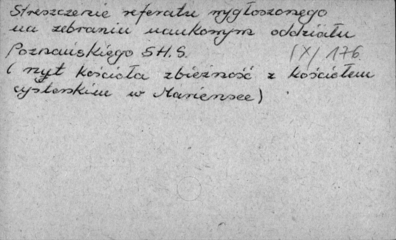 Streszczenie referatu wygłoszonego
na zebraniu naukowym oddziału
Poznańskiego S.H.S. (X) 176
( rzyt kościoła zbieżność z kościołem
cysterskim w Mariensee)